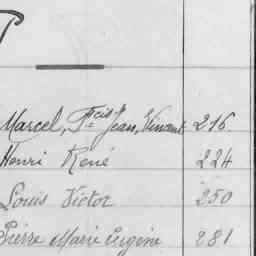 Marcel, Fcis Jean, Vincent 216.
Henri René 224
Louis Victor 250
Pierre Marie Eugène 281